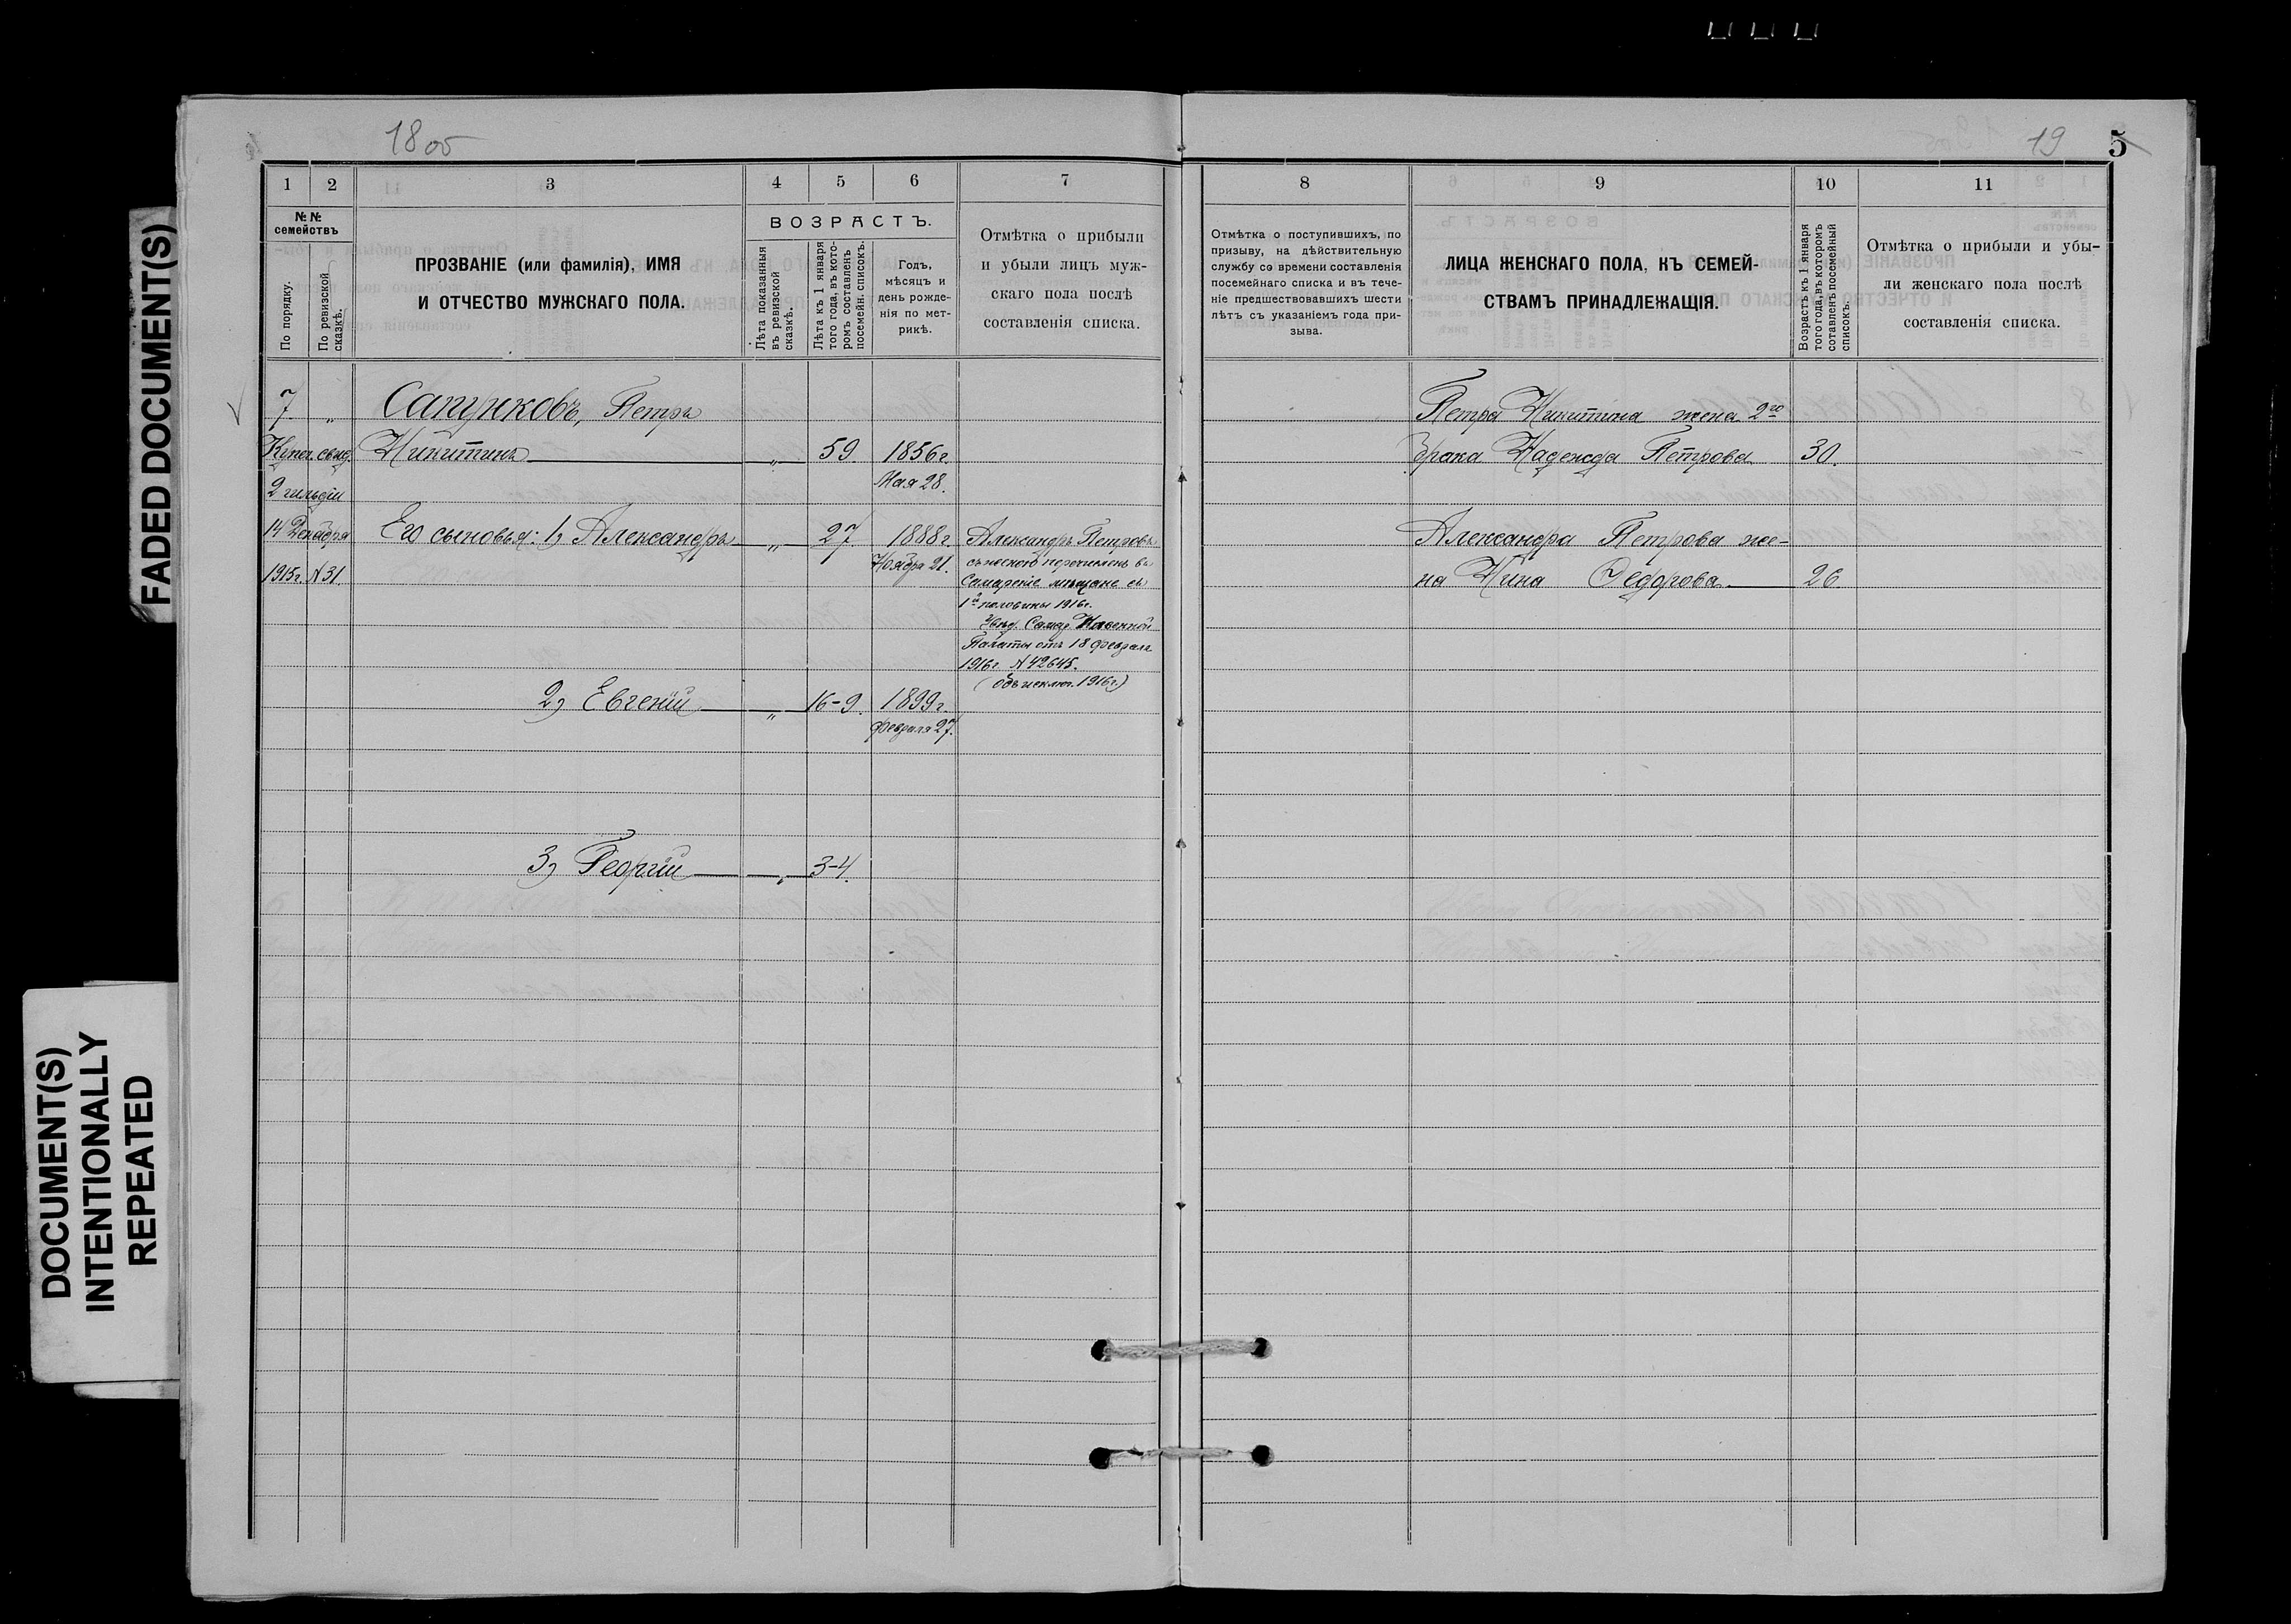 FADED DOCUMENT(S)
DOCUMENT(S)
INTENTIONALLY
REPEATED
18 об
1
2
3
4
5
6
7
№ №
семействъ
По порядку.
По ревизской
сказкѣ.
ПРОЗВАНІЕ (или фамилія), ИМЯ
И ОТЧЕСТВО МУЖСКАГО ПОЛА.
ВОЗРАСТЪ.
Лѣта показанныя
въ ревизской
сказкѣ.
Лѣта къ 1 января
того года, въ кото-
ромъ составленъ
посемейн. списокъ.
Годъ,
мѣсяцъ и
день рожде-
нія по мет-
рикѣ.
Отмѣтка о прибыли
и убыли лицъ муж-
скаго пола послѣ
составленія списка.
7 „ Сапунковъ, Петръ
Купеч. свид. Никитинъ „ 59. 1856 г.
2 гильдіи Мая 28.
14 Декабря Его сыновья: 1) Александръ „ 27. 1888 г.
1915 г. № 31. Ноября 21.
Александръ Петровъ
съ женою перечисленъ въ
Самарскіе мѣщане съ
1й половины 1916 г.
Увѣд. Самар. Казенной
Палаты отъ 18 февраля
1916 г. № 42645.
(объ исключ. 1916 г.)
2) Евгеній „ 16-9. 1899 г.
февраля 27.
3) Георгій „ 3-4.
19 5
8
9
10
11
Отмѣтка о поступившихъ, по
призыву, на дѣйствительную
службу со времени составленія
посемейнаго списка и въ тече-
ніе предшествовавшихъ шести
лѣтъ съ указаніемъ года при-
зыва.
ЛИЦА ЖЕНСКАГО ПОЛА, КЪ СЕМЕЙ-
СТВАМЪ ПРИНАДЛЕЖАЩІЯ.
Возрастъ къ 1 января
того года, въ которомъ
составленъ посемейный
списокъ.
Отмѣтка о прибыли и убы-
ли женскаго пола послѣ
составленія списка.
Петра Никитина жена 2го
брака Надежда Петрова 30.
Александра Петрова же-
на Нина Федорова 26.